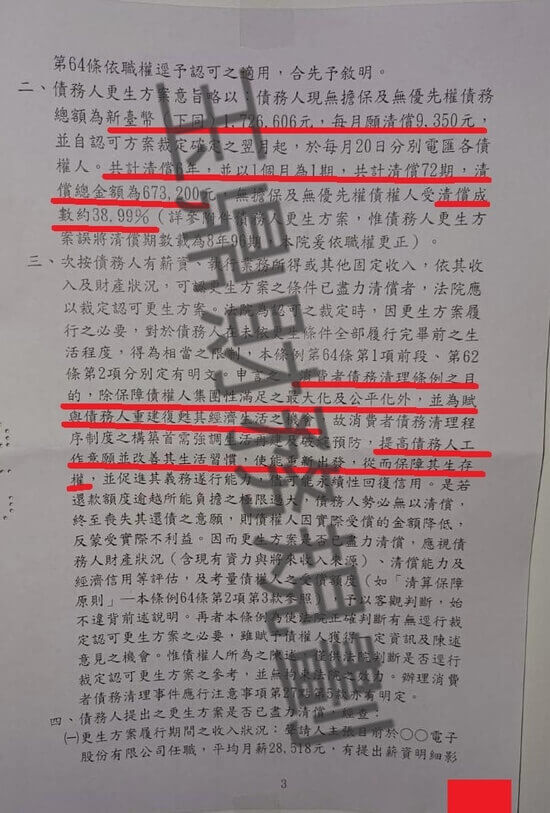 第64條依職權逕予認可之適用，合先予敘明。
二、債務人更生方案意旨略以：債務人現無擔保及無優先權債務
總額為新臺幣（下同）1,726,606元，每月願清償9,350元，
並自認可方案裁定確定之翌月起，於每月20日分別電匯各債
權人。共計清償6年，並以1個月為1期，共計清償72期，清
償總金額為673,200元，無擔保及無優先權債權人受清償成
數約38.99%（詳參附件債務人更生方案，惟債務人更生方
案誤將清償期數載為8年96期，本院爰依職權更正）。
三、次按債務人有薪資、執行業務所得或其他固定收入，依其收
入及財產狀況，可認更生方案之條件已盡力清償者，法院應
以裁定認可更生方案。法院為認可之裁定時，因更生方案履
行之必要，對於債務人在未依更生條件全部履行完畢前之生
活程度，得為相當之限制，本條例第64條第1項前段、第62
條第2項分別定有明文。申言之，消費者債務清理條例之目
的，除保障債權人集團性滿足之最大化及公平化外，並為賦
與債務人重建復甦其經濟生活之機會，故消費者債務清理程
序制度之構築首需強調生活再建及破綻預防，提高債務人工
作意願並改善其生活習慣，使能重新出發，從而保障其生存
權，並促進其義務遂行能力，俾可能永續性回復信用。是若
還款額度逾越所能負擔之極限過大，債務人勢必無以清償，
終至喪失其還債之意願，則債權人因實際受償的金額降低，
反蒙受實際不利益。因而更生方案是否已盡力清償，應視債
務人財產狀況（含現有資力與將來收入來源）、清償能力及
經濟信用等評估，及考量債權人之受償額度（如「清算保障
原則」—本條例64條第2項第3款參照），予以客觀判斷，始
不違背前述說明。再者本條例為使法院正確判斷有無逕行裁
定認可更生方案之必要，雖賦予債權人獲得一定資訊及陳述
意見之機會。惟債權人所為之陳述，僅供法院判斷是否逕行
裁定認可更生方案之參考，並無拘束法院之效力。辦理消費
者債務清理事件應行注意事項第27點第5款亦有明定。
四、債務人提出之更生方案是否已盡力清償，經查：
㈠更生方案履行期間之收入狀況：聲請人主張目前於○○電子
股份有限公司任職，平均月薪28,518元，有提出薪資明細影
3